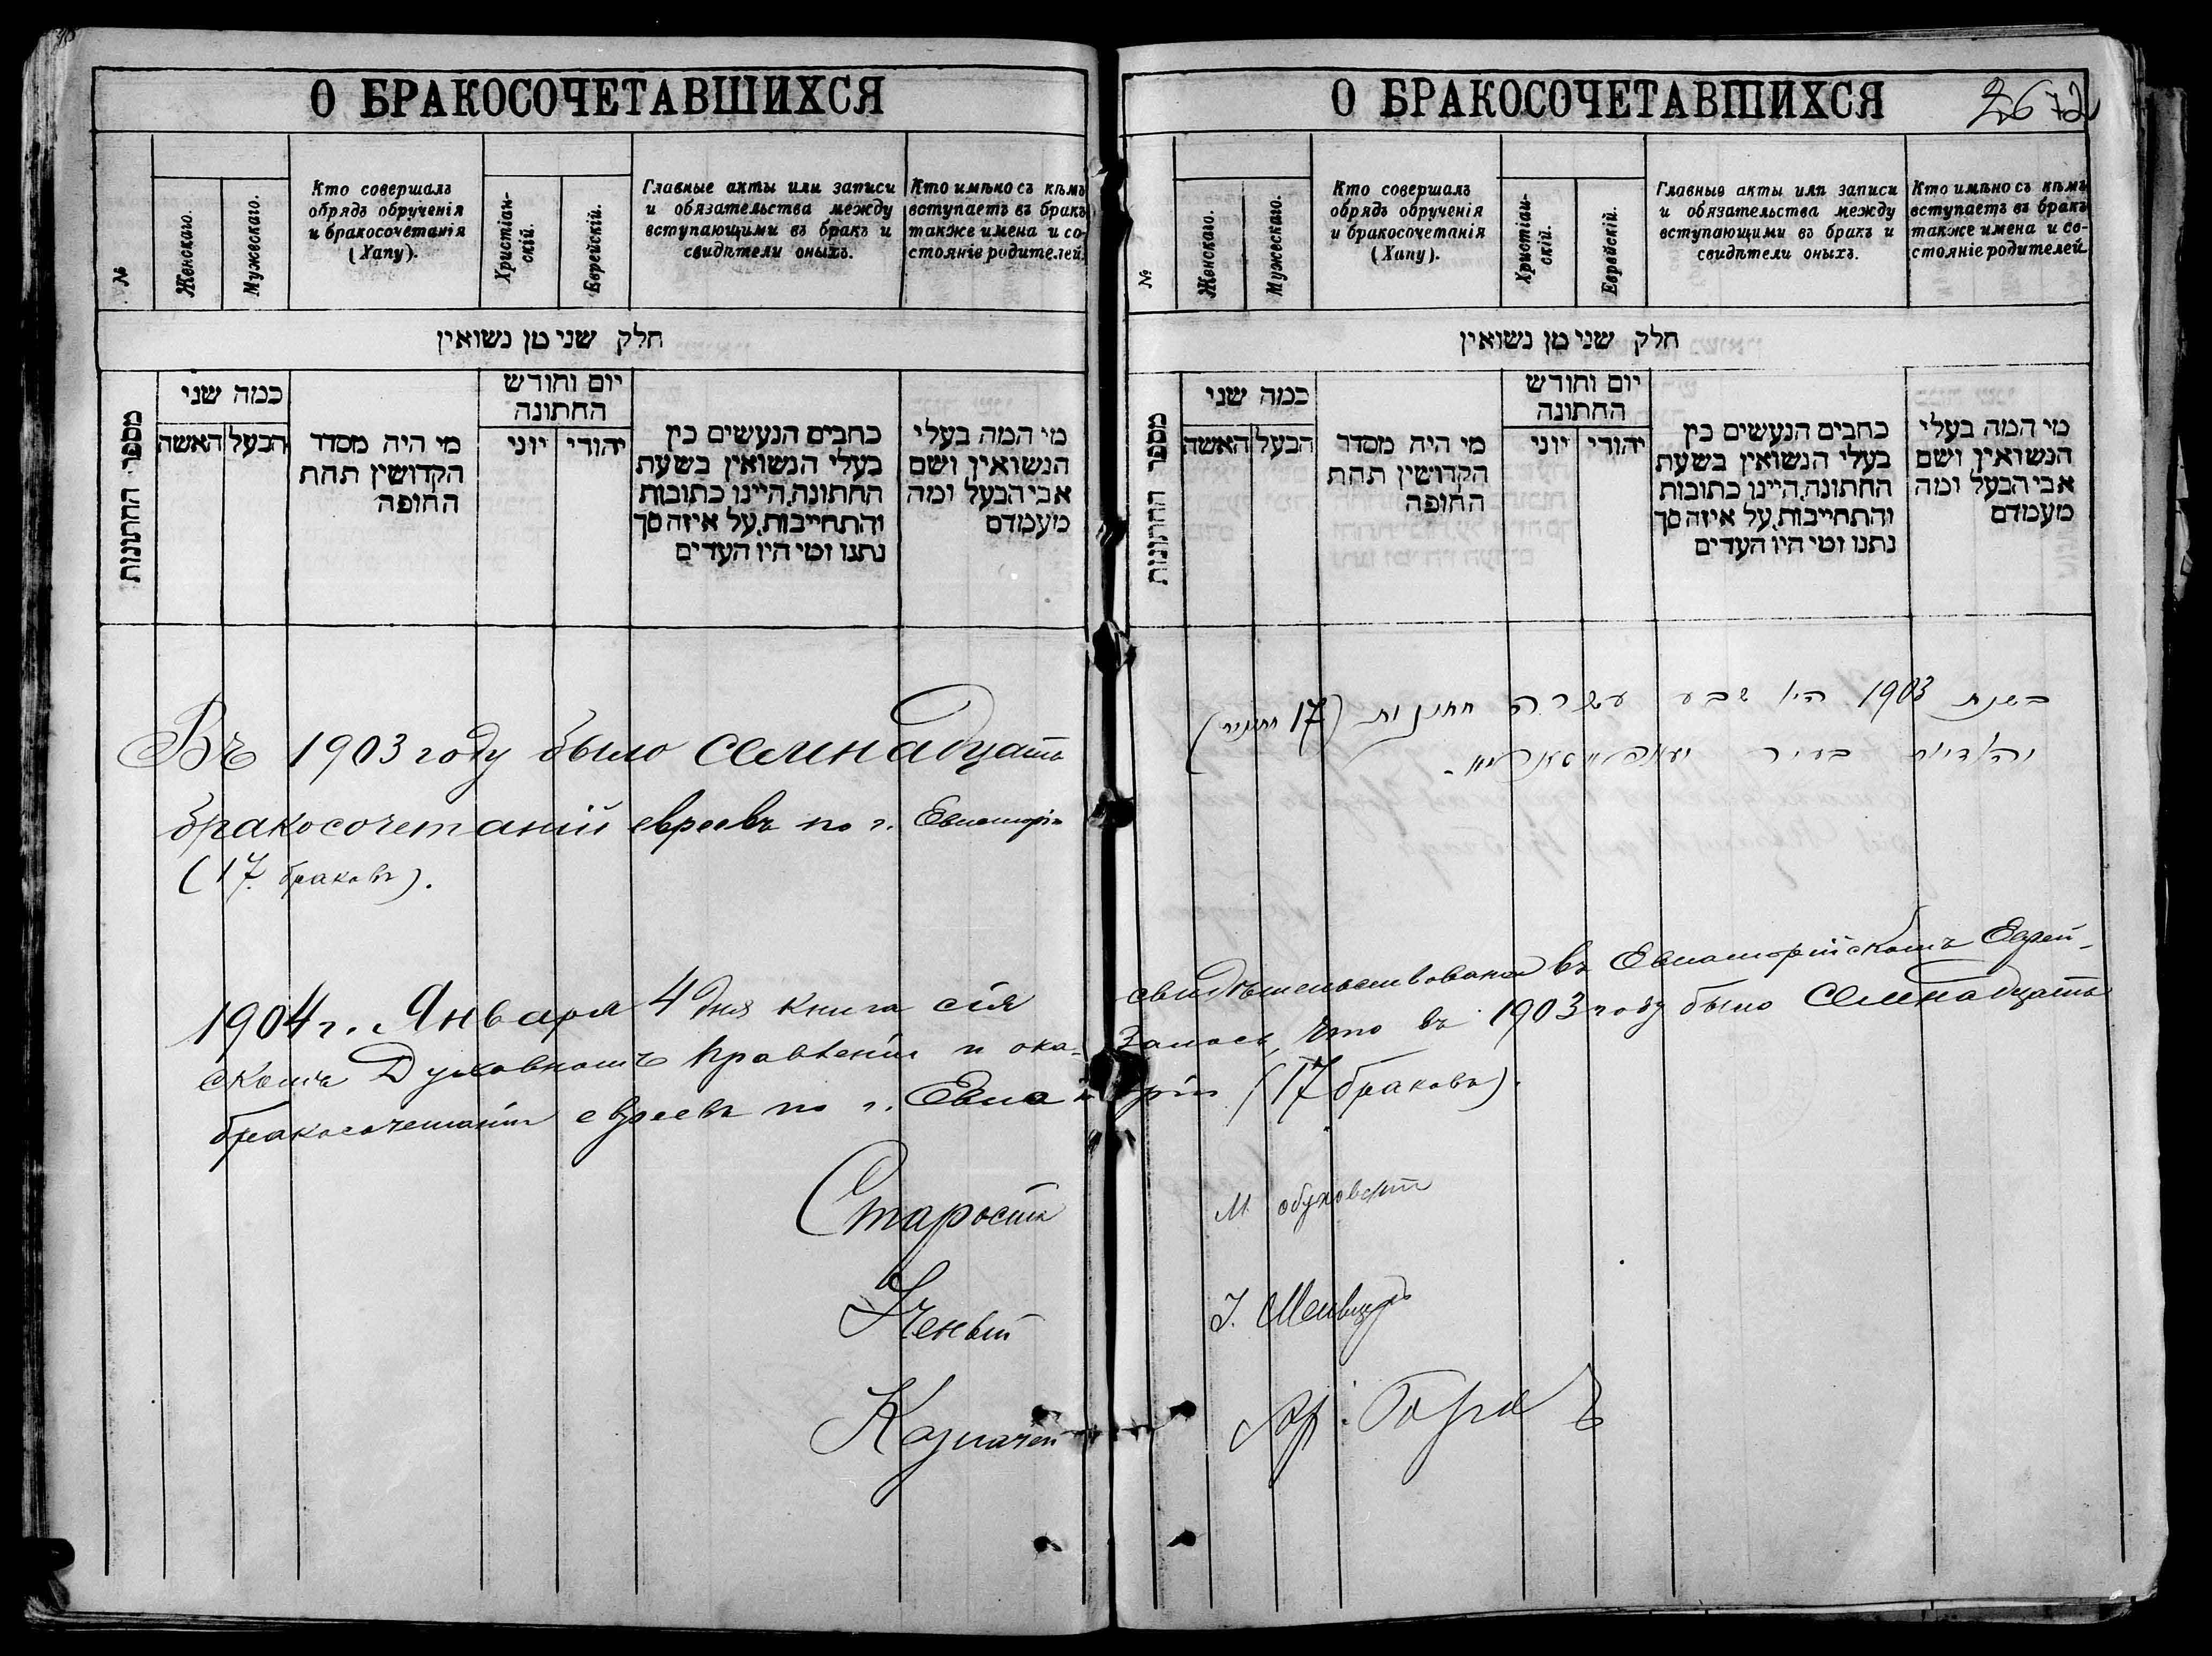 О БРАКОСОЧЕТАВШИХСЯ
№
Женскаго.
Мужескаго.
Кто совершалъ
обрядъ обрученія
и бракосочетанія
(Хапу).
Христіан-
скій.
Еврейскій.
Главные акты или записи
и обязательства между
вступающими въ бракъ и
свидѣтели оныхъ.
Кто имѣно съ кѣмъ
вступаетъ въ бракъ
также имена и со-
стояніе родителей.
חלק שני מן נשואין
מספר החתונות
כמה שני
האשה
הבעל
מי היה מסדר
הקדושין תחת
החופה
יום וחודש
החתונה
יוני
יהודי
כתבים הנעשים בין
בעלי הנשואין בשעת
החתונה, היינו כתובות
והתחייבות, על איזה סך
נתנו ומי היו העדים
מי המה בעלי
הנשואין ושם
אבי הבעל ומה
מעמדם
Въ 1903 году было семнадцать
бракосочетаній евреевъ по г. Евпаторіи
(17 браковъ).
О БРАКОСОЧЕТАВШИХСЯ
№
Женскаго.
Мужескаго.
Кто совершалъ
обрядъ обрученія
и бракосочетанія
(Хапу).
Христіан-
скій.
Еврейскій.
Главные акты или записи
и обязательства между
вступающими въ бракъ и
свидѣтели оныхъ.
Кто имѣно съ кѣмъ
вступаетъ въ бракъ
также имена и со-
стояніе родителей.
חלק שני מן נשואין
מספר החתונות
כמה שני
האשה
הבעל
מי היה מסדר
הקדושין תחת
החופה
יום וחודש
החתונה
יוני
יהודי
כתבים הנעשים בין
בעלי הנשואין בשעת
החתונה, היינו כתובות
והתחייבות, על איזה סך
נתנו ומי היו העדים
מי המה בעלי
הנשואין ושם
אבי הבעל ומה
מעמדם
בשנת 1903 היו שבע עשרה חתונות (17 חתונות)
בעיר
1904 г. Января 4 дня книга сія свидѣтельствована въ Евпаторійскомъ Еврей-
скомъ Духовномъ Правленіи и ока-залось, что въ 1903 году было семнадцать
бракосочетаній евреевъ по г. Евпаторіи (17 браковъ).
Староста М Обуховскій
Ученый І.
Казначей